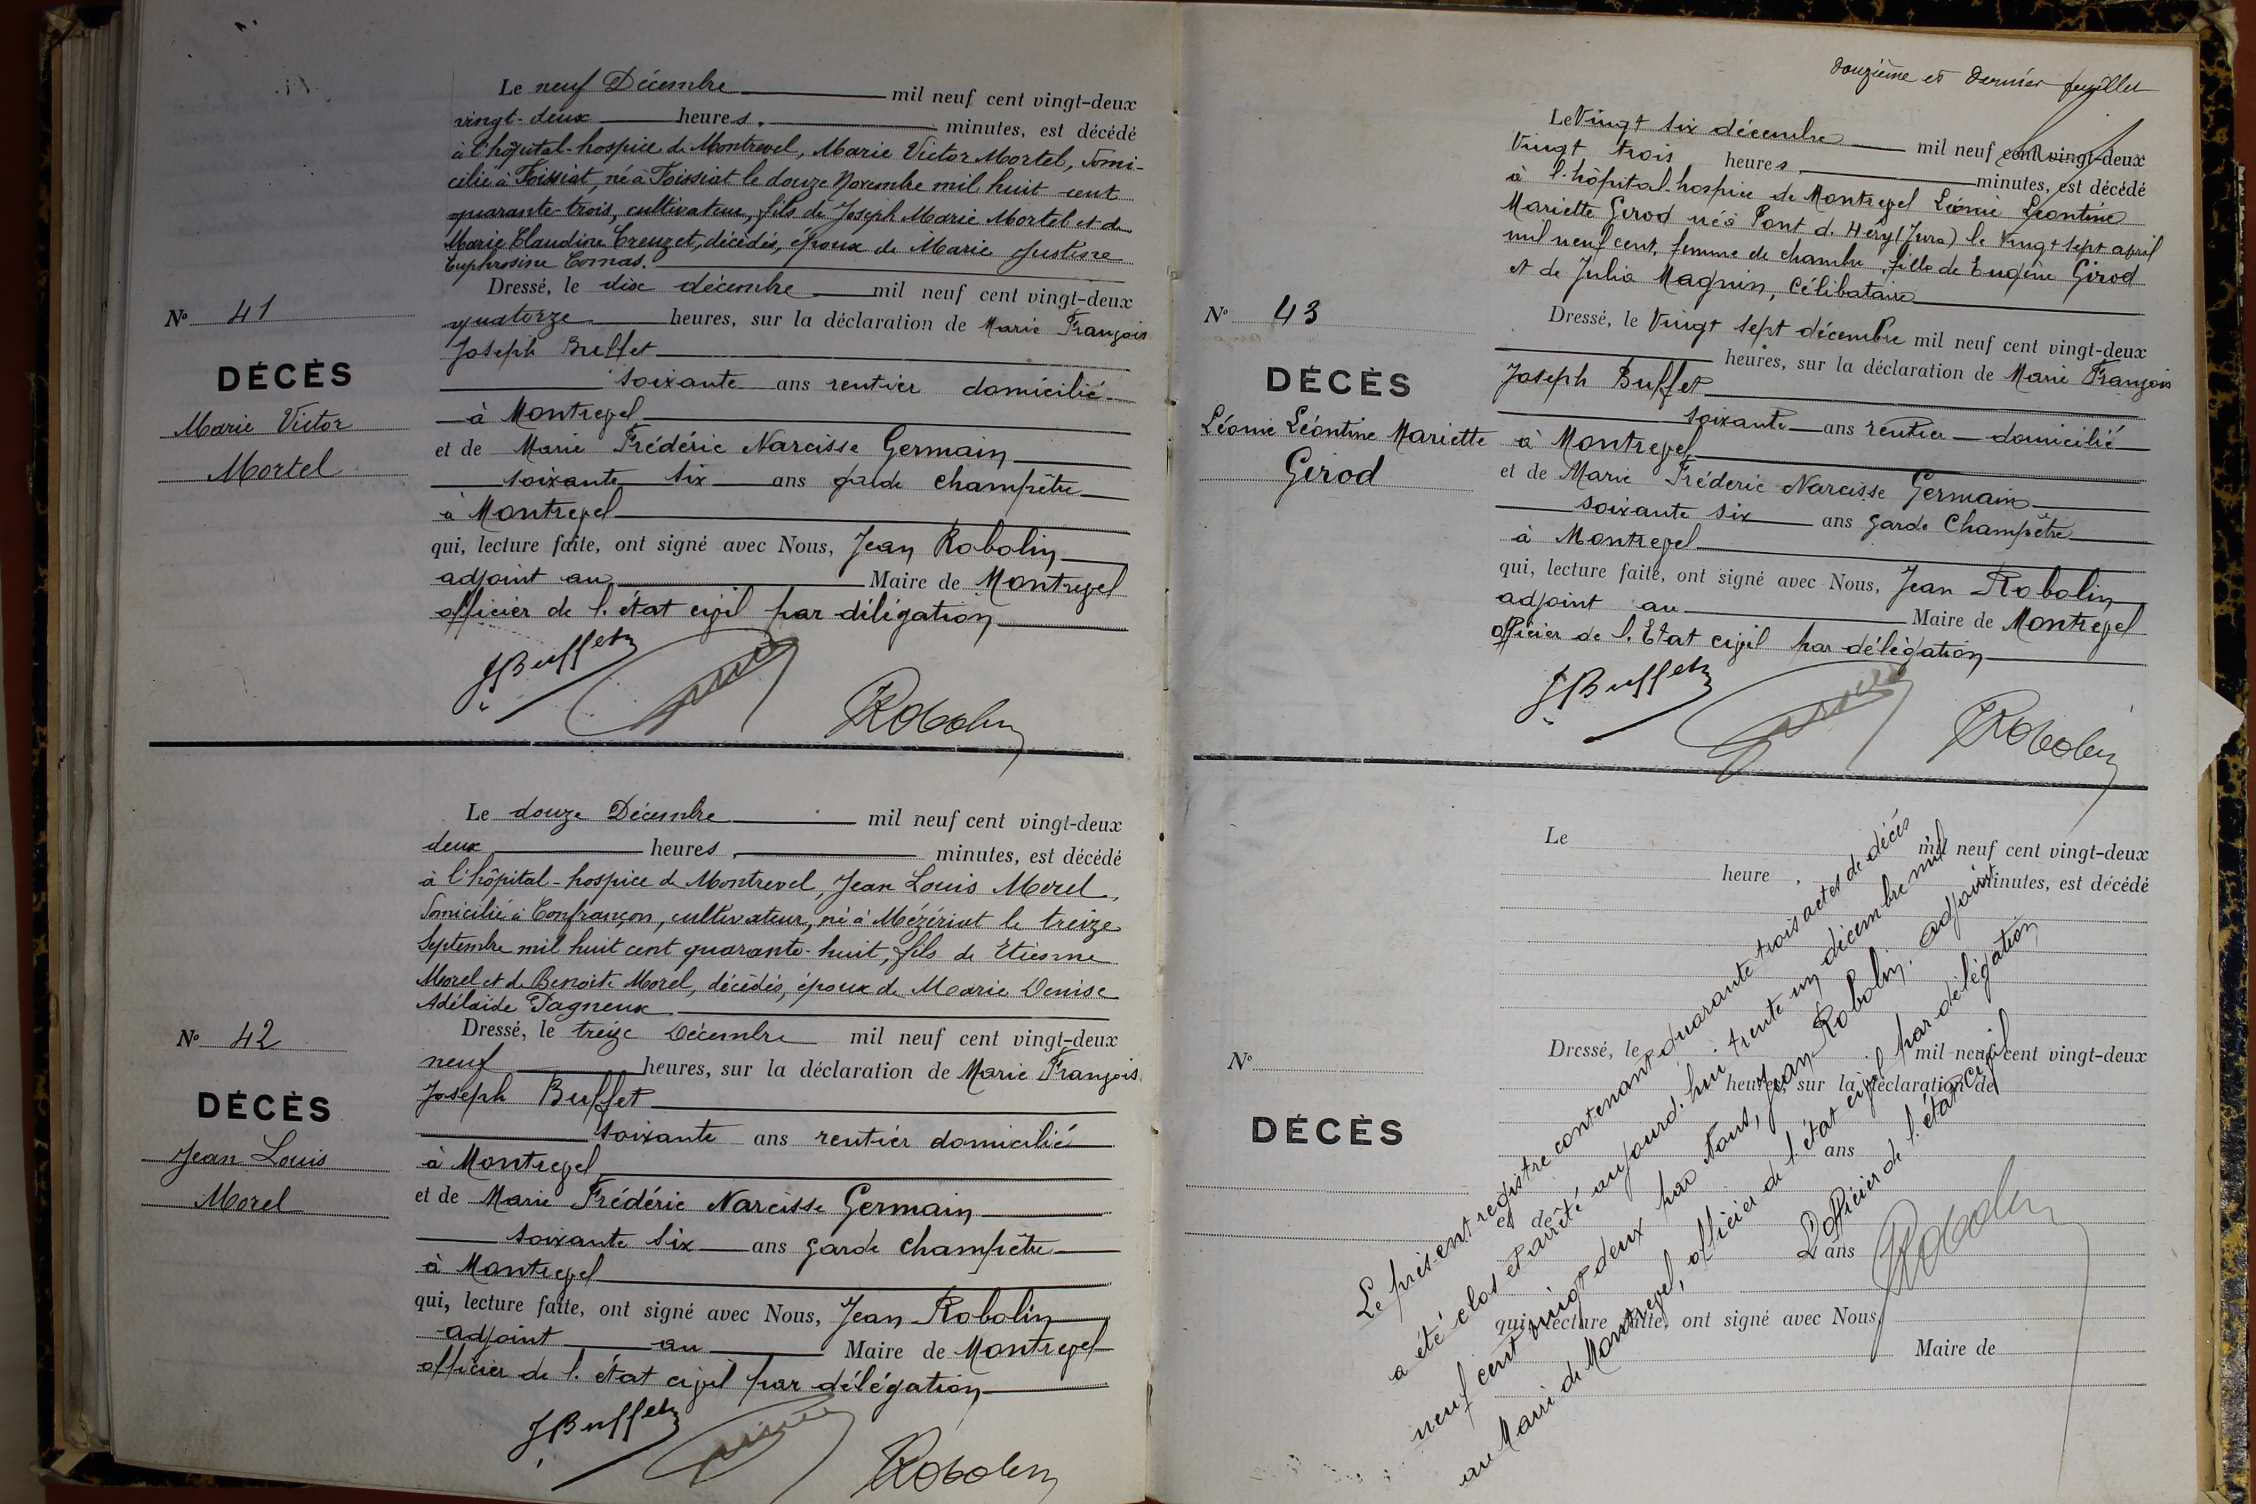 Le neuf Décembre mil neuf cent vingt-deux
vingt-deux heures, minutes, est décédé
à l'hôpital-hospice de Montrevel, Marie Victor Mortel, domi-
cilié à Foissiat, né à Foissiat le douze Novembre mil huit cent
quarante-trois, cultivateur, fils de Joseph Marie Mortel et de
Marie Claudine Creuzet, décédés, époux de Marie Justine
Euphrosine Comas.
Dressé, le dix décembre mil neuf cent vingt-deux
quatorze heures, sur la déclaration de Marie François
Joseph Buffet
soixante ans rentier domicilié
à Montrevel
et de Marie Frédéric Narcisse Germain
soixante six ans garde champêtre
à Montrevel
qui, lecture faite, ont signé avec Nous, Jean Robolin
adjoint au Maire de Montrevel
officier de l'état civil par délégation
JBuffet
Robolin
N° 41
DÉCÈS
Marie Victor
Mortel
Le douze Décembre mil neuf cent vingt-deux
deux heures, minutes, est décédé
à l'hôpital-hospice de Montrevel, Jean Louis Morel,
domicilié à Confrançon, cultivateur, né à Mézériat le treize
Septembre mil huit cent quarante-huit, fils de Etienne
Morel et de Benoite Morel, décédés, époux de Marie Denise
Adélaïde Pagneux
Dressé, le treize Décembre mil neuf cent vingt-deux
neuf heures, sur la déclaration de Marie François
Joseph Buffet
soixante ans rentier domicilié
à Montrevel
et de Marie Frédéric Narcisse Germain
soixante six ans garde champêtre
à Montrevel
qui, lecture faite, ont signé avec Nous, Jean Robolin
adjoint au Maire de Montrevel
officier de l'état civil par délégation
JBuffet
Robolin
N° 42
DÉCÈS
Jean Louis
Morel
douzième et dernier feuillet
Le Vingt six décembre mil neuf cent vingt-deux
Vingt trois heures, minutes, est décédé
à l'hôpital-hospice de Montrevel Léonie Léontine
Mariette Girod né à Pont d'Héry (Jura) le vingt sept avril
mil neuf cent, femme de chambre, fille de Eugène Girod
et de Julia Magnin, Célibataire
Dressé, le Vingt sept décembre mil neuf cent vingt-deux
heures, sur la déclaration de Marie François
Joseph Buffet
soixante ans rentier domicilié
à Montrevel
et de Marie Fréderic Narcisse Germain
soixante six ans garde Champêtre
à Montrevel
qui, lecture faite, ont signé avec Nous, Jean Robolin
adjoint au Maire de Montrevel
officier de l'Etat civil par délégation
JBuffet
Robolin
N° 43
DÉCÈS
Léonie Léontine Mariette
Girod
Le mil neuf cent vingt-deux
heure, minutes, est décédé
Dressé, le mil neuf cent vingt-deux
heures, sur la déclaration de
ans
et de
ans
qui, lecture faite, ont signé avec Nous,
Maire de
N°
DÉCÈS
Le présent registre contenant quarante trois actes de décès
a été clos et arrêté aujourd'hui trente un décembre mil
neuf cent vingt deux par Nous, Jean Robolin, adjoint
au Maire de Montrevel, officier de l'état civil par délégation
L'officier de l'état civil
Robolin